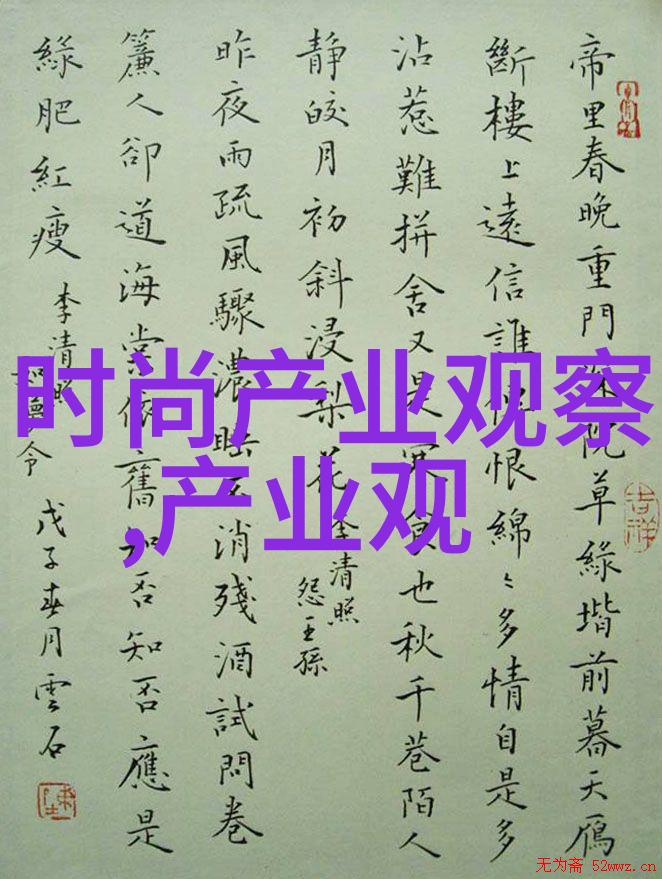 帝里春晚重門深院草綠堦前暮天鴈
斷樓上遠信誰傳恨綿〻多情自是多
沾惹難拼舍又是寒食也秋千巷陌人
靜皎月初斜浸梨花
李清照
怨王孫
昨夜雨疏風驟濃睡不消殘酒試問卷
簾人卻道海棠依舊知否知否應是
綠肥紅瘦
李清照
如夢令
戊子春月雲石
吉祥
时尚产业观察
,产业观
无为斋 52wwz.cn